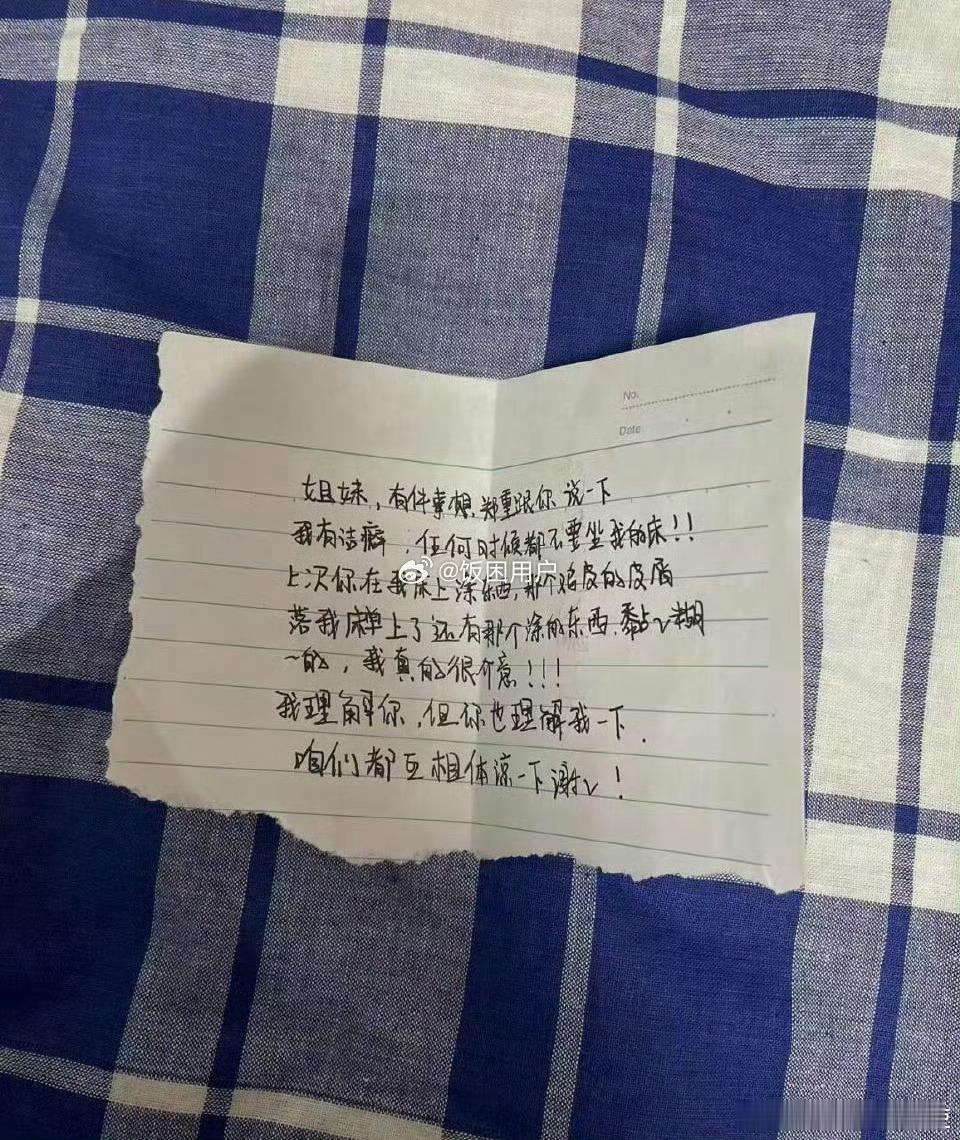 No.
Date
姐妹，有件事想郑重跟你说一下
我有洁癖，任何时候都不要坐我的床！！
@饭困用户
上次你在我床上涂东西，那个鸡皮的皮屑
落我床单上了还有那个涂的东西，黏〻糊
〻的，我真的很介意！！！
我理解你，但你也理解我一下．
咱们都互相体谅一下谢〻！